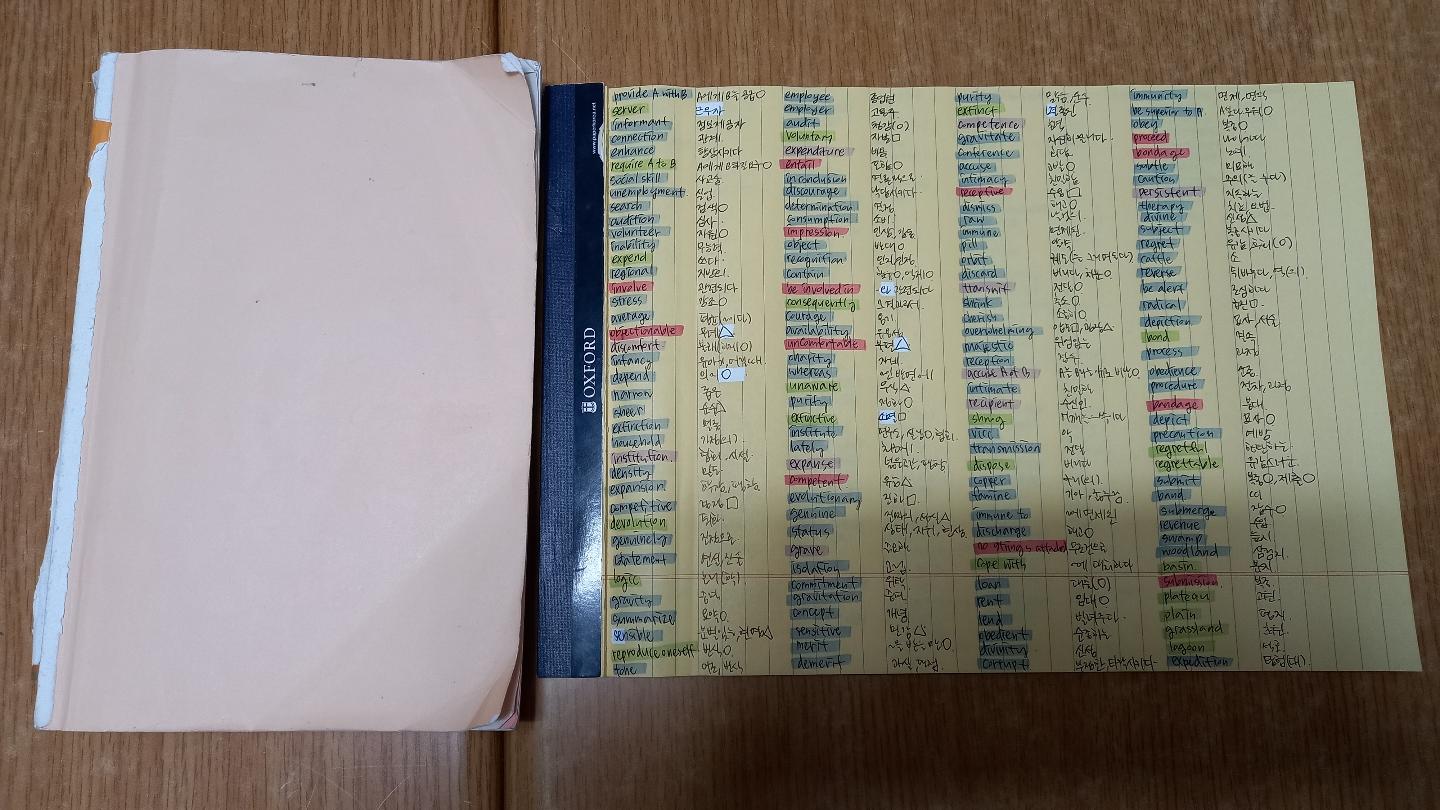 www.paperkorea.net
OXFORD
provide A with B A에게 B를 공급○
server 근무자
informant 정보제공자
connection 관계
enhance 향상시키다
require A to B A에게 B하라 요구○
social skill 사교술
unemployment 실업
search 검색○
audition 심사
volunteer 자원○
inability 무능력
expend 쓰다
regional 지방의
involve 관련되다
stress 강조○
average 평균
objectionable 불쾌△
discomfort 불쾌
infancy 유아기
depend 의지○
narrow 좁은
sheer 순수△
extinction 멸종
household 가정(의)
institution 협회, 시설
density 밀도
expansion 확장, 팽창
competitive 경쟁□
devolution 퇴화
genuinely 진정으로
statement 연설, 진술
logic 논리(학)
gravity 중력
summarize 요약○
sensible 분별있는,
reproduce oneself 번식○
tone 어조,
employee 종업원
employer 고용주
audit
voluntary 자발□
expenditure 비용
entail 포함○
in conclusion 결론적으로
discourage 낙담시키다
determination 결정
consumption 소비
impression 인상, 감동
object 반대○
recognition 인지, 인정
contain 함유○, 억제○
be involved in 관련되다
consequently 그 결과로서
courage 용기
availability 유용성
uncomfortable 불편△
charity 자비
whereas 반면에
unaware 무식△
purify 정화○
extinctive 소멸□
institute
lately 최근에
expanse 넓은공간, 팽창
competent 유능△
evolutionary 진화□
genuine 진짜의, 진실△
status 상태, 지위, 현상
grave 중요한
isolation 고립
commitment 위탁
gravitation 중력
concept 개념
sensitive 민감△
merit
demerit 과실, 결점
purity 맑음, 순수
extinct 멸종된
competence 능력
gravitate
conference 회의
accuse 고발○
intimacy 친밀함
receptive 수용□
dismiss 해고○
raw 날것의
immune 면제된
pill 알약
orbit 궤도
discard 버리다, 해고○
transmit 전달○
shrink 축소○
cherish 소중히○
overwhelming 압도□,
majestic 위엄있는
reception 접수
accuse A of B A를 B라는 죄로 비난○
intimate 친밀한
recipient 수신인
shrug
vice 악
transmission 전달
dispose 버리다
copper 구리(의)
famine 기아, 굶주림
immune to ~에 면제된
discharge 해고○
no strings attached 무조건으로
cope with ~에 대처하다
loan 대출(○)
rent 임대○
lend 빌려주다
obedient 순종하는
divinity 신성
corrupt 부정한, 타락시키다
immunity 면제, 면역
be superior to A A보다 우위○
obey 복종○
proceed 나아가다
bondage 노예
subtle 미묘한
caution 주의(를 주다)
persistent 지속하는
therapy 치료, 요법
divine 신성△
subject 복종시키다
regret 유감, 후회(○)
cattle 소
reverse 뒤바꾸다, 역(의)
be alert 조심하다
radical 급진□
depiction 묘사, 서술
bond 결속
process 과정
obedience 순종
procedure 절차, 과정
bandage 붕대
depict 묘사○
precaution 예방
regretful 한탄하는
regrettable 유감스러운
submit 복종○, 제출○
band 띠
submerge 잠수○
revenue 수입
swamp 늪지
woodland 삼림지
basin 분지
submission 복종
plateau 고원
plain 평지
grassland 초원
lagoon 석호
expedition 탐험(대)